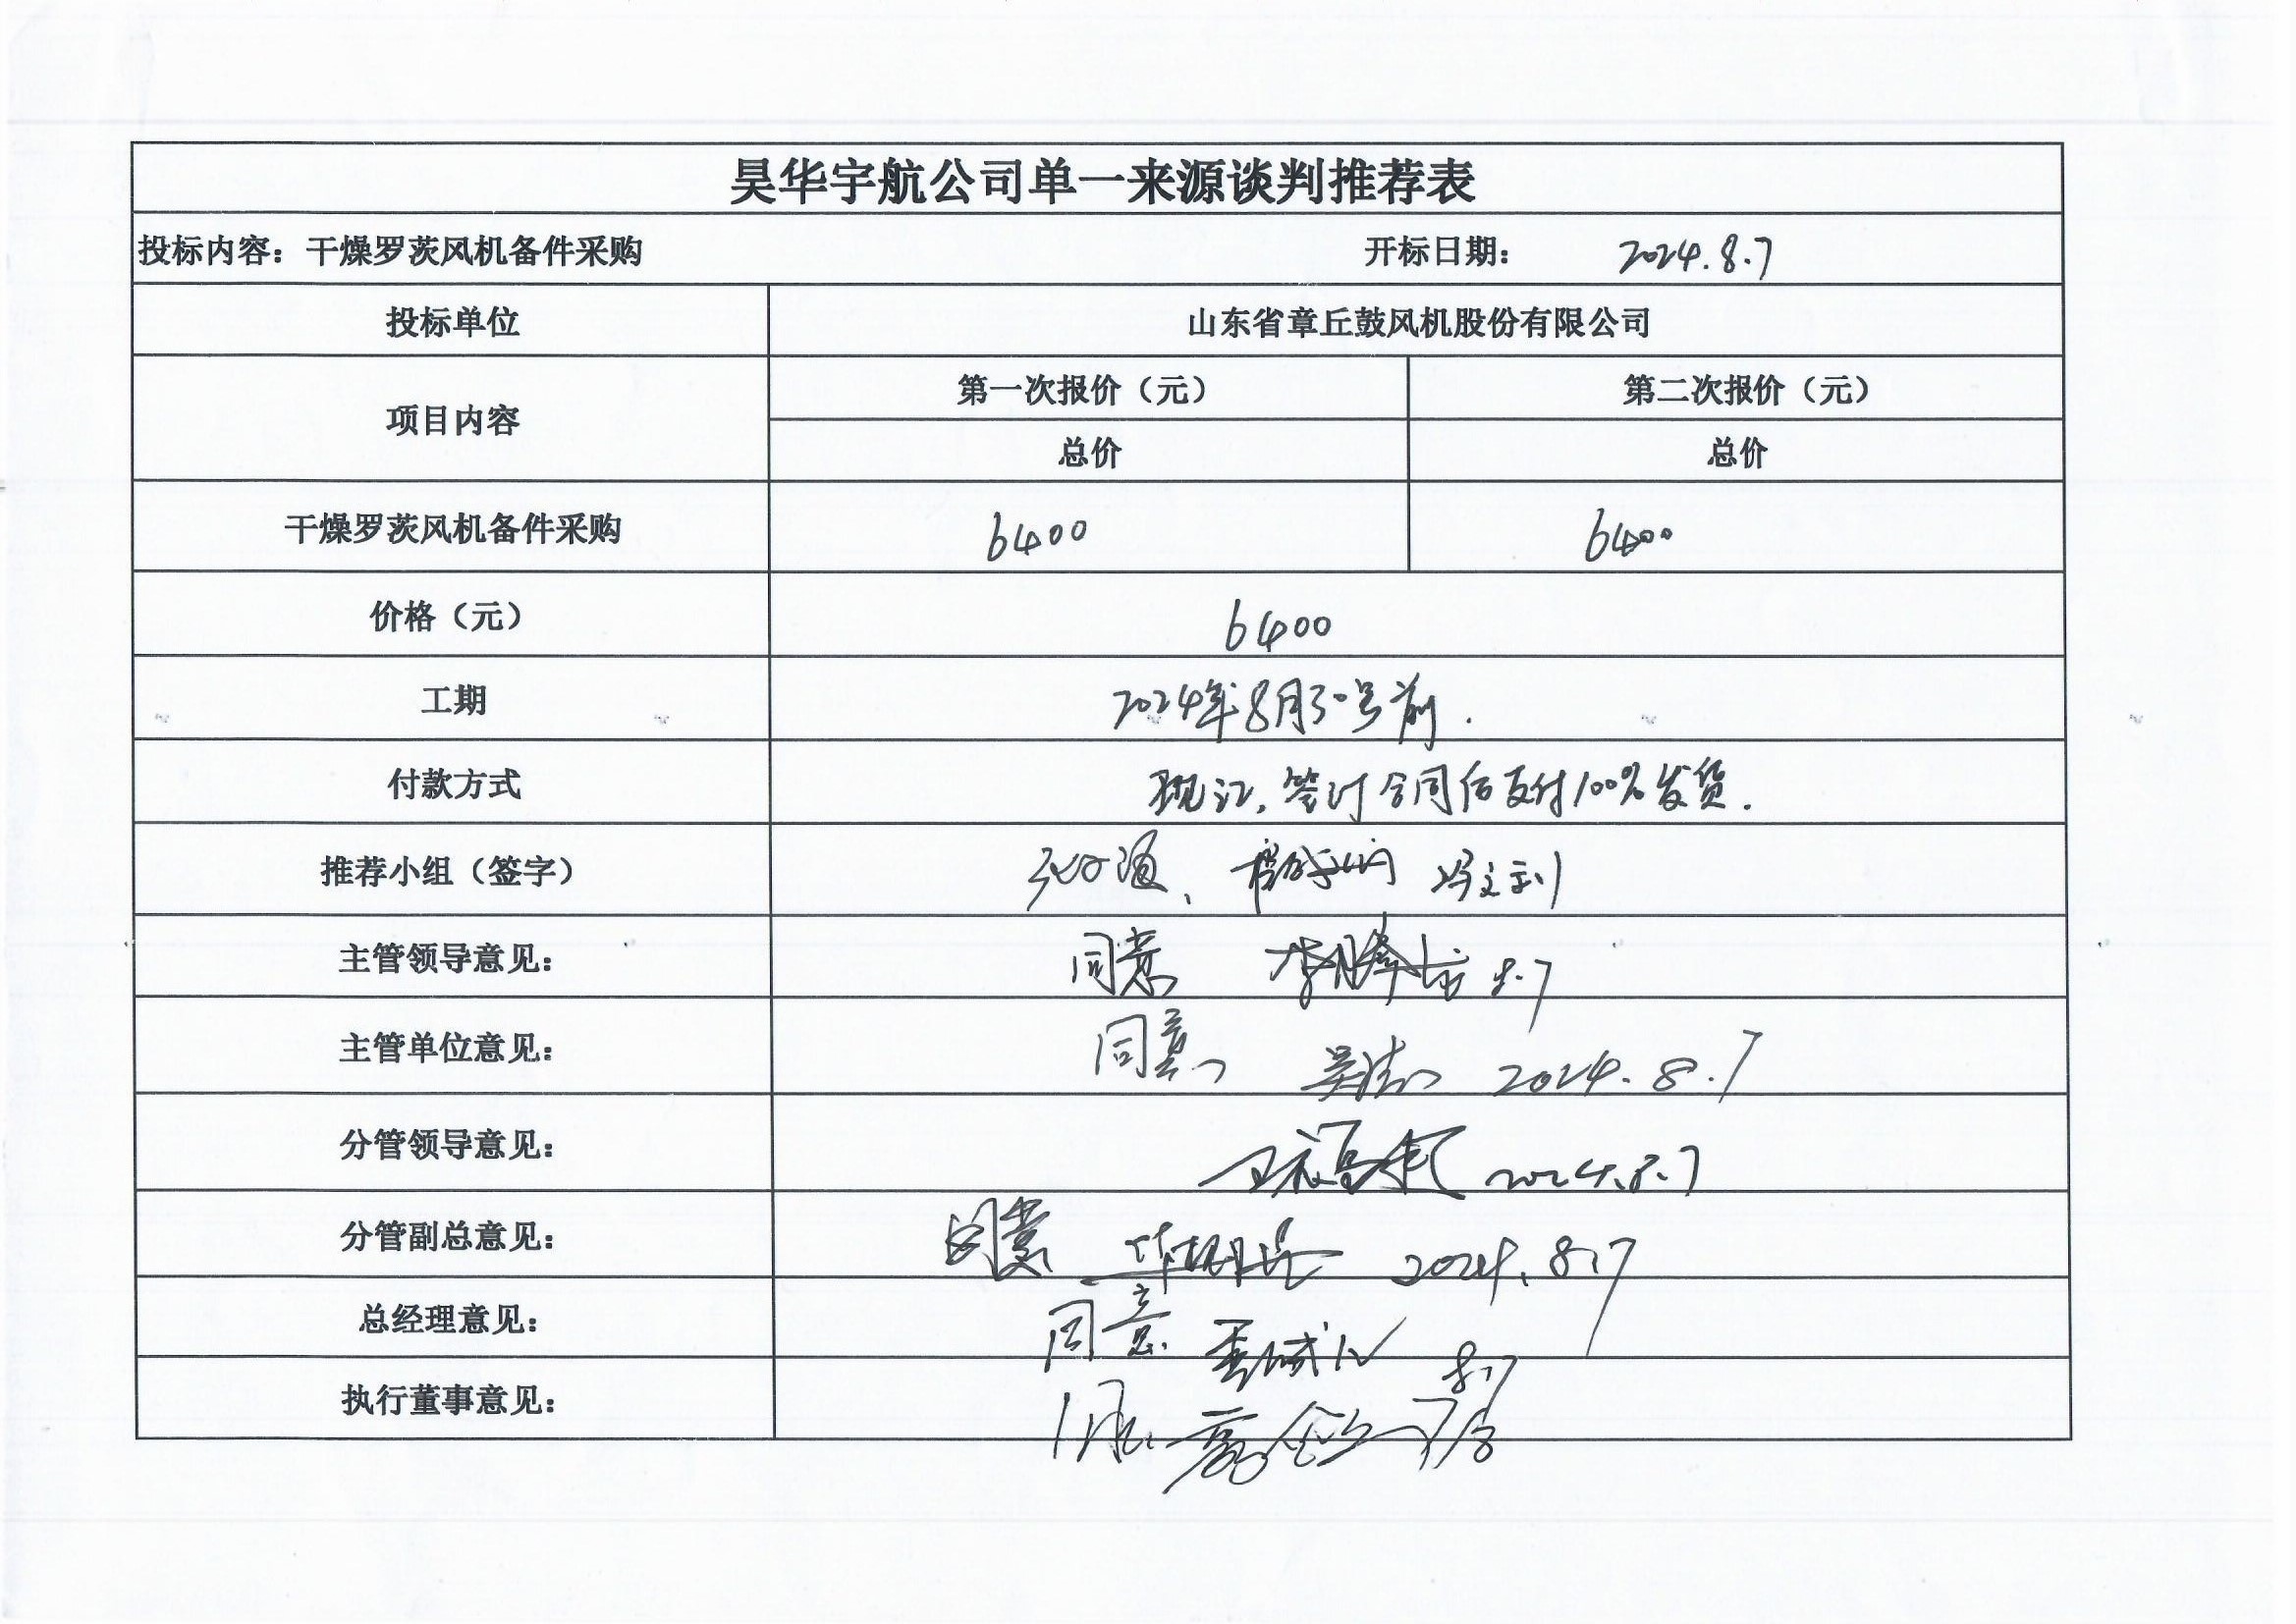 昊华宇航公司单一来源谈判推荐表
投标内容：干燥罗茨风机备件采购 开标日期： 2024.8.7
投标单位 山东省章丘鼓风机股份有限公司
项目内容 第一次报价（元） 第二次报价（元）
总价 总价
干燥罗茨风机备件采购 6400 6400
价格（元） 6400
工期 2024年8月30号前.
付款方式 现汇,签订合同后支付100%发货.
推荐小组（签字） 冯文利
主管领导意见： 同意 8.7
主管单位意见： 同意 2024.8.7
分管领导意见： 2024.8.7
分管副总意见： 同意 2024.8.7
总经理意见： 同意 8.7
执行董事意见： 7/8